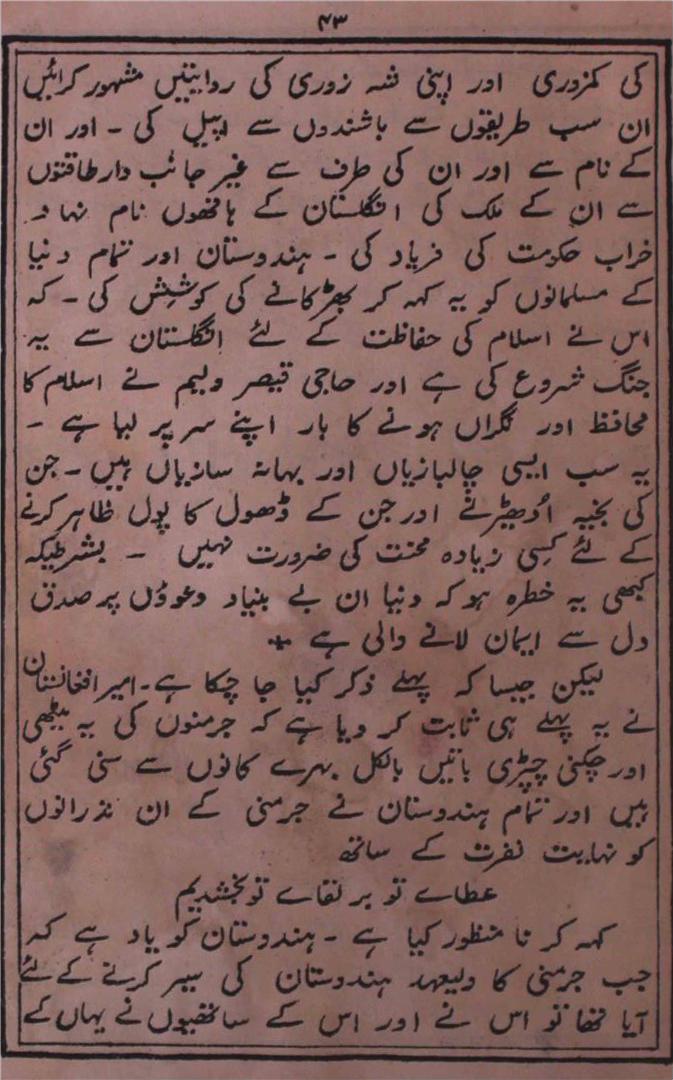 ۴۳
کی کمزوری اور اپنی شہ زوری کی روایتیں مشہور کرائیں
ان سب طریقوں سے باشندوں سے اپیل کی - اور ان
کے نام سے اور ان کی طرف سے غیر جانب دار طاقتوں
سے ان کے ملک کی انگلستان کے ہاتھوں نام نہاد
خراب حکومت کی فریاد کی - ہندوستان اور تمام دنیا
کے مسلمانوں کو یہ کہہ کر بھڑکانے کی کوشش کی - کہ
اس نے اسلام کی حفاظت کے لئے انگلستان سے یہ
جنگ شروع کی ہے اور حاجی قیصر ولیم نے اسلام کا
محافظ اور نگراں ہونے کا بار اپنے سر پر لیا ہے -
یہ سب ایسی چالبازیاں اور بہانہ سازیاں ہیں - جن
کی بخیہ اُدھیڑنے اور جن کے ڈھول کا پول ظاہر کرنے
کے لئے کسی زیادہ محنت کی ضرورت نہیں - بشرطیکہ
کبھی یہ خطرہ ہو کہ دنیا ان بے بنیاد دعوؤں پر صدق
دل سے ایمان لانے والی ہے +
لیکن جیسا کہ پہلے ذکر کیا جا چکا ہے - امیر افغانستان
نے یہ پہلے ہی ثابت کر دیا ہے کہ جرمنوں کی یہ میٹھی
اور چکنی چپڑی باتیں بالکل بہرے کانوں سے سنی گئی
ہیں اور تمام ہندوستان نے جرمنی کے ان نذرانوں
کو نہایت نفرت کے ساتھ
عطاے تو بر لقاے تو بخشدیم
کہہ کر نا منظور کیا ہے - ہندوستان کو یاد ہے کہ
جب جرمنی کا ولیعہد ہندوستان کی سیر کرنے کے لئے
آیا تھا تو اس نے اور اس کے ساتھیوں نے یہاں کے